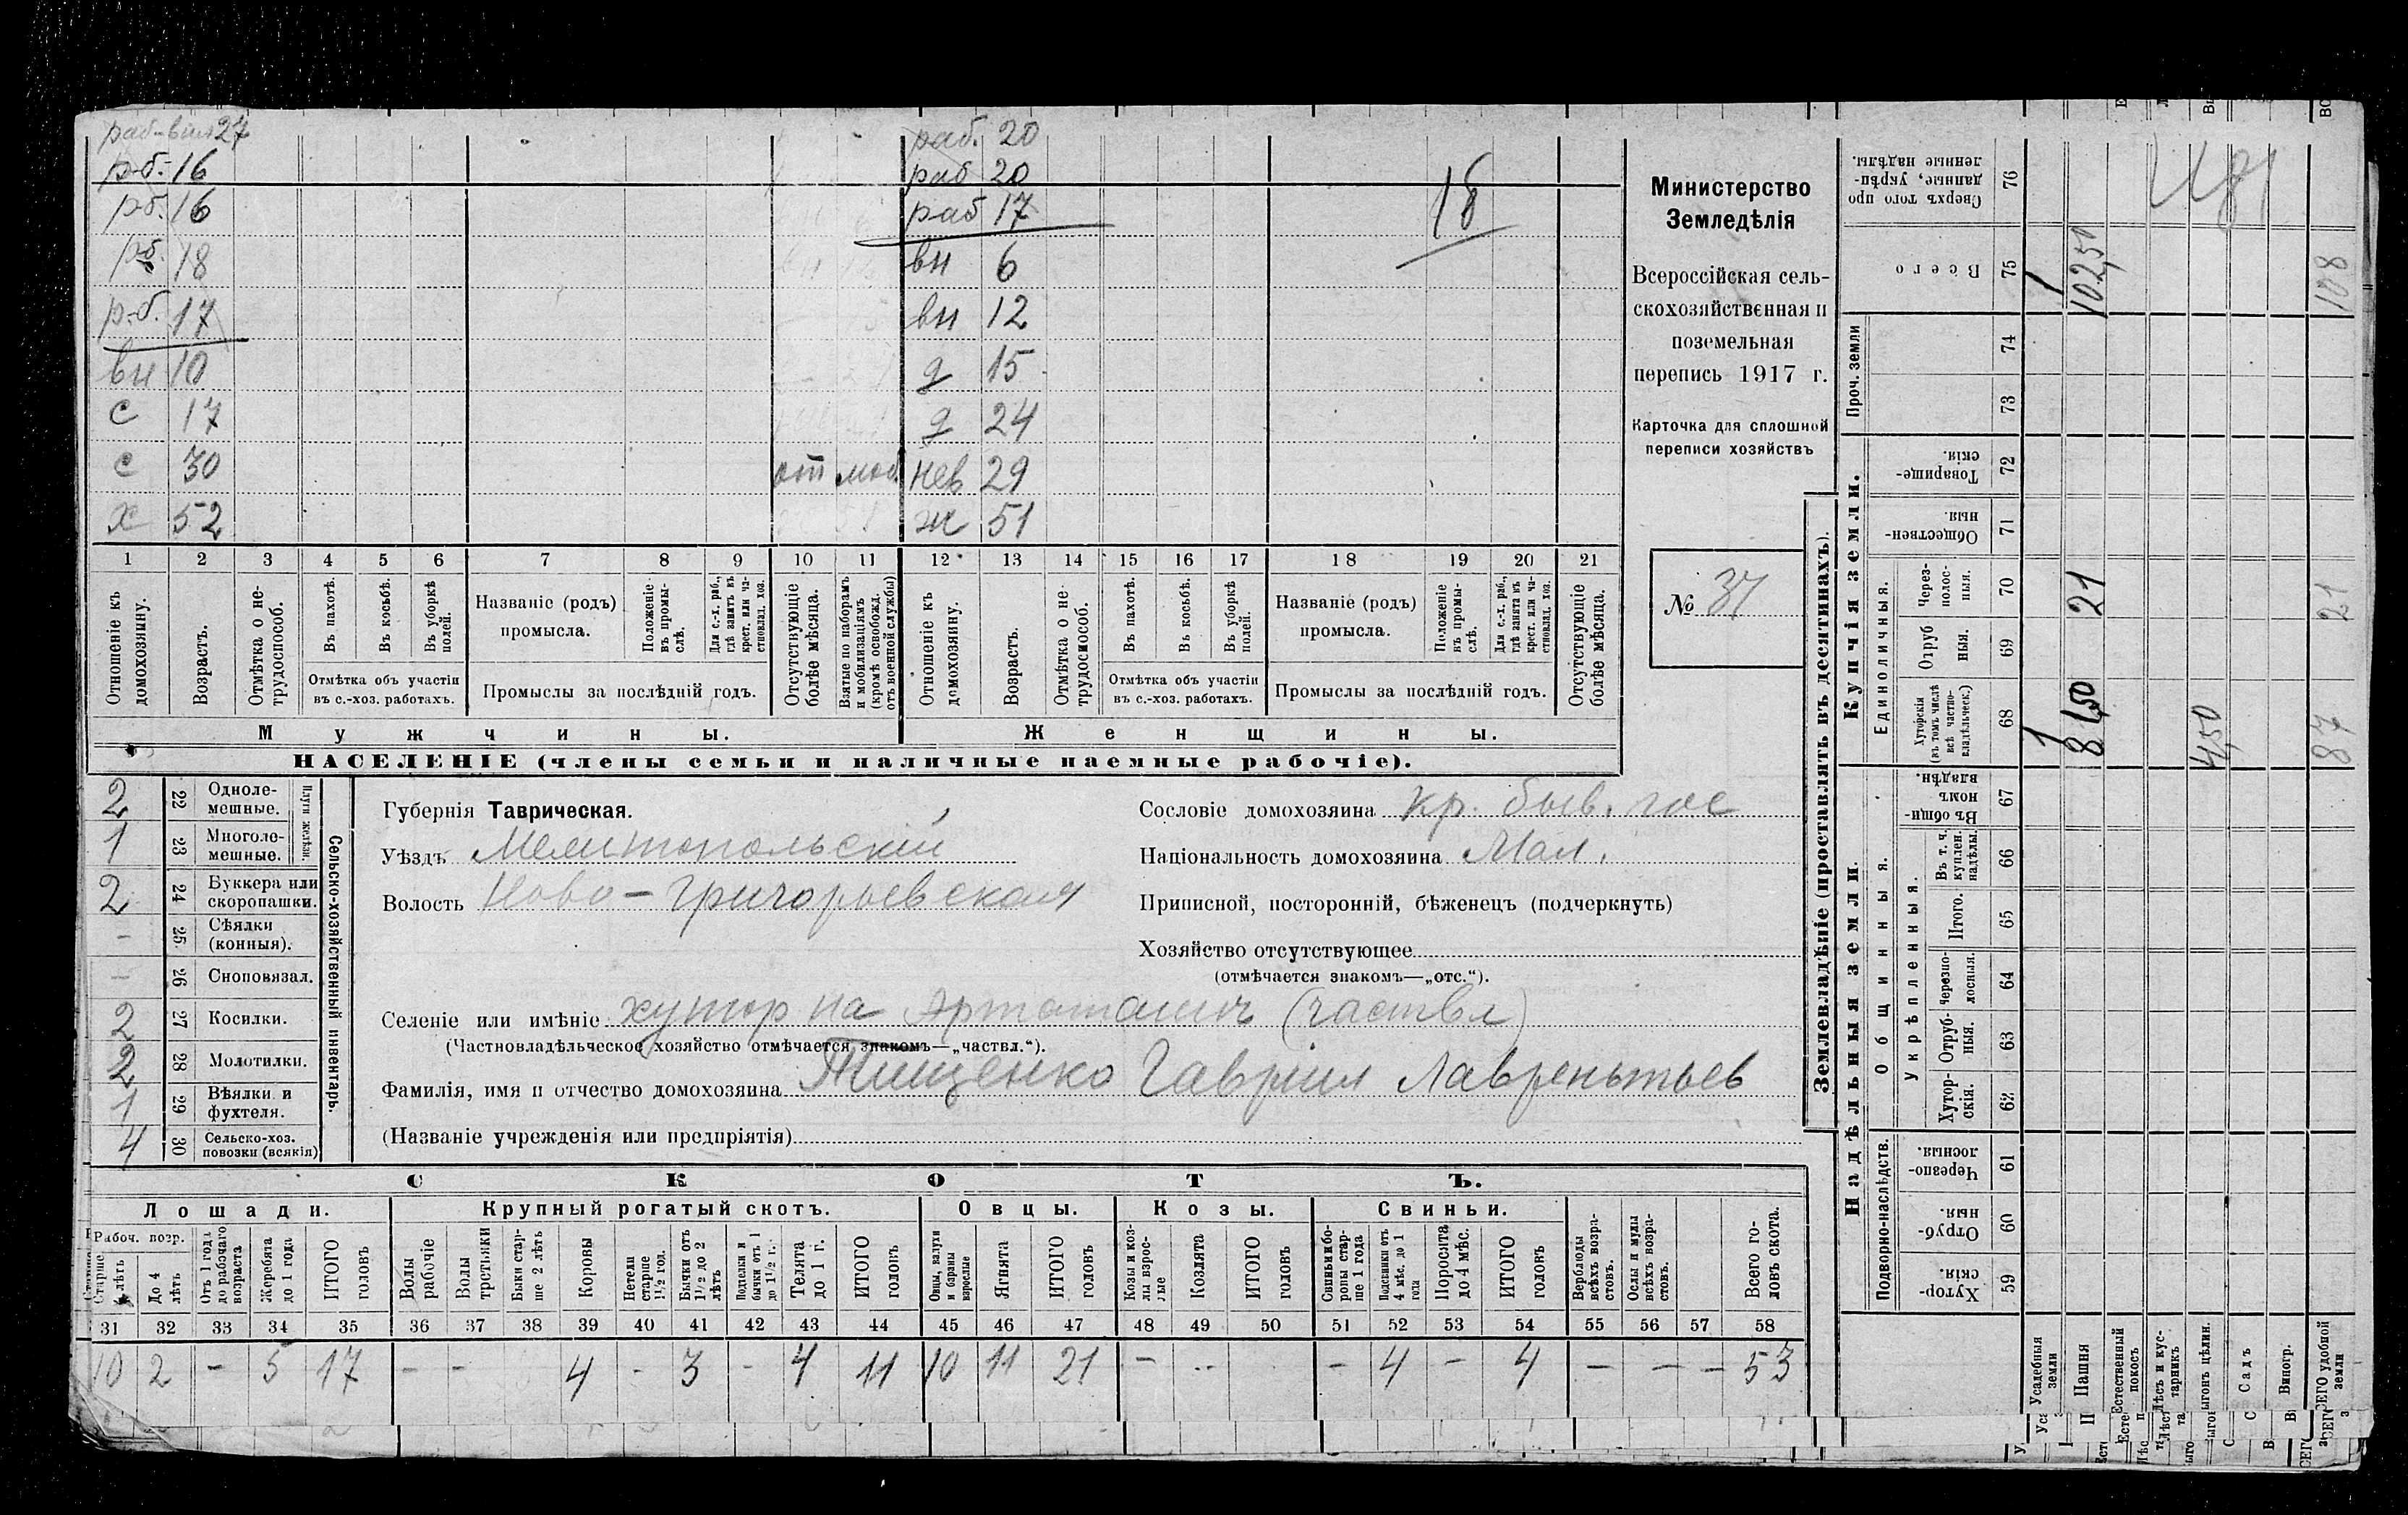 раб-вил 27
р-б. 16
р-б. 16
р-б. 18
р-б. 17
вн 10
с 17
с 30 от моб.
х 52
раб. 20
раб 20
раб 17
вн 6
вн 12
д 15
д 24
нев 29
ж 51
18
1 2 3 4 5 6 7 8 9 10 11 12 13 14 15 16 17 18 19 20 21
Отношеніе къ домохозяину.
Возрастъ.
Отмѣтка о не-трудоспособ.
Въ пахотѣ.
Въ косьбѣ.
Въ уборкѣ полей.
Отмѣтка объ участіи
въ с.-хоз. работахъ.
Названіе (родъ)
промысла.
Положеніе въ промы-слѣ.
Для с.-х. раб., гдѣ занятъ въ крест. или ча-стновлад. хоз.
Промыслы за послѣдній годъ.
Отсутствующіе болѣе мѣсяца.
Взятые по наборамъ и мобилизаціямъ (кромѣ освобожд. отъ военной службы)
Отношеніе къ домохозяину.
Возрастъ.
Отмѣтка о не-трудоспособ.
Въ пахотѣ.
Въ косьбѣ.
Въ уборкѣ полей.
Отмѣтка объ участіи
въ с.-хоз. работахъ.
Названіе (родъ)
промысла.
Положеніе въ промы-слѣ.
Для с.-х. раб., гдѣ занята въ крест. или ча-стновлад. хоз.
Промыслы за послѣдній годъ.
Отсутствующіе болѣе мѣсяца.
Мужчины.
Женщины.
НАСЕЛЕНІЕ (члены семьи и наличные наемные рабочіе).
Министерство
Земледѣлія
Всероссійская сель-
скохозяйственная и
поземельная
перепись 1917 г.
Карточка для сплошной
переписи хозяйствъ
№ 37
2 22 Одноле-мешные.
1 23 Многоле-мешные.
Плуги желѣзн.
2 24 Буккера или скоропашки.
- 25 Сѣялки (конныя).
- 26 Сноповязал.
2 27 Косилки.
2 28 Молотилки.
1 29 Вѣялки и фухтеля.
4 30 Сельско-хоз. повозки (всякія)
Сельско-хозяйственный инвентарь.
Губернія Таврическая.
Уѣздъ Мелитопольскій
Волость Ново-Григорьевская
Сословіе домохозяина кр. быв. гос
Національность домохозяина Мал.
Приписной, посторонній, бѣженецъ (подчеркнуть)
Хозяйство отсутствующее
(отмѣчается знакомъ—„отс.“).
Селеніе или имѣніе хутор на (частвл)
(Частновладѣльческое хозяйство отмѣчается знакомъ—„частвл.“).
Фамилія, имя и отчество домохозяина Тищенко Гавриил Лаврентьев
(Названіе учрежденія или предпріятія)
СКОТЪ.
Лошади.
Крупный рогатый скотъ.
Овцы.
Козы.
Свиньи.
Рабоч. возр.
Старше 4 лѣтъ
До 4 лѣтъ
Отъ 1 года до рабочаго возраста
Жеребята до 1 года
ИТОГО головъ
Волы рабочіе
Волы третьяки
Быки стар-ше 2 лѣтъ
Коровы
Нетели старше 1½ год.
Бычки отъ 1½ до 2 лѣтъ
Подтелки и бычки отъ 1 до 1½ г.
Телята до 1 г.
ИТОГО головъ
Овцы, валухи и бараны взрослые
Ягнята
ИТОГО головъ
Козы и коз-лы взрос-лые
Козлята
ИТОГО головъ
Свиньи и бо-ровы стар-ше 1 года
Подсвинки отъ 4 мѣс. до 1 года
Поросята до 4 мѣс.
ИТОГО головъ
Верблюды всѣхъ возра-стовъ.
Ослы и мулы всѣхъ возра-стовъ.
Всего го-ловъ скота.
31 32 33 34 35 36 37 38 39 40 41 42 43 44 45 46 47 48 49 50 51 52 53 54 55 56 57 58
10 2 - 5 17 - - 4 - 3 - 4 11 10 11 21 - - - 4 - 4 - - - 53
Землевладѣніе (проставлять въ десятинахъ).
Надѣльныя земли.
Купчія земли.
Проч. земли
Подворно-наслѣдств.
Общинныя.
Укрѣпленныя.
Единоличныя.
Хутор-скія. 59
Отруб-ныя. 60
Черезпо-лосныя. 61
Хутор-скія. 62
Отруб-ныя. 63
Черезпо-лосныя. 64
Итого. 65
Въ т. ч. куплен. надѣлы. 66
Въ общи-номъ владѣн. 67
Хуторскія (въ томъ числѣ всѣ частно-владѣльческ.) 68
Отруб ныя. 69
Через-полос-ныя. 70
Обществен-ныя. 71
Товарище-скія. 72
73
74
Всего 75
Сверхъ того про данные, укрѣп-ленные надѣлы. 76
Усадебныя земли 1 1
Пашня 81,50 21 102,50
Естественный покосъ
Лѣсъ и кус-тарникъ
Выгонъ цѣлин. 4,50
Садъ
Виногр.
ВСЕГО удобной земли 87 21 108